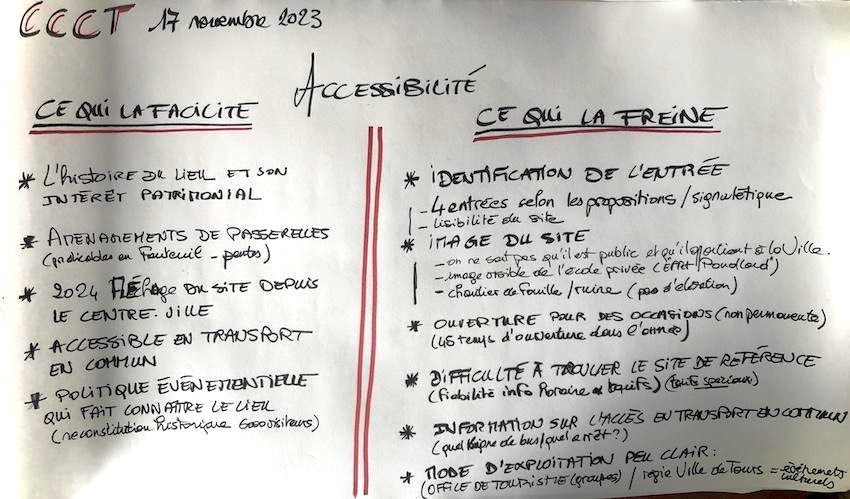 CCCT 17 novembre 2023
ACCESSIBILITÉ
CE QUI LA FACILITE
* L'histoire DU LIEU ET SON
INTÉRÊT PATRIMONIAL
* AMENAGEMENTS DE PASSERELLES
(praticables en fauteuil - pentes)
* 2024 Fléchage DU SITE DEPUIS
LE CENTRE-VILLE
* ACCESSIBLE EN TRANSPORT
EN COMMUN
* POLITIQUE ÉVÉNEMENTIELLE
QUI FAIT CONNAÎTRE LE LIEU
(reconstitution historique 6000 visiteurs)
CE QUI LA FREINE
* IDENTIFICATION DE L'ENTRÉE
- 4 entrées selon les propositions / signalétique
- lisibilité du site
* IMAGE DU SITE
- on ne sait pas qu'il est public et qu'il appartient à la Ville.
- image visible de l'école privée (effet "Poudlard")
- chantier de fouille / ruine (pas d'élévation)
* OUVERTURE POUR DES OCCASIONS (non permanente)
(45 temps d'ouverture dans l'année)
* DIFFICULTÉ À TROUVER LE SITE DE RÉFÉRENCE
(fiabilité info horaire & tarifs)
* INFORMATION SUR L'ACCÈS EN TRANSPORT EN COMMUN
(quelle ligne de bus/quel arrêt ?)
* MODE D'EXPLOITATION PEU CLAIR :
(OFFICE DE TOURISME (groupes) / régie Ville de Tours = évènements
culturels